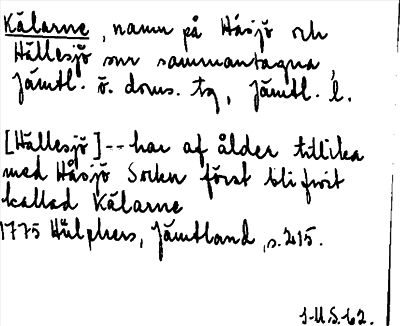 Kälarne, namn på Håsjö och
Hällesjö snr sammantagna,
Jämtl. ö. doms. tg, Jämtl. l.
[Hällesjö] -- har af ålder tillika
med Håsjö Sockn först blifwit
kallad Kälarne
1775 Hülphers, Jämtland, s. 215.
J-U S. 62.